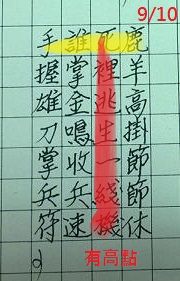 9/10
鹿羊高掛節節休
死裡逃生一綫機
誰掌金鳴收兵速
手握雄刀掌兵符
有高點